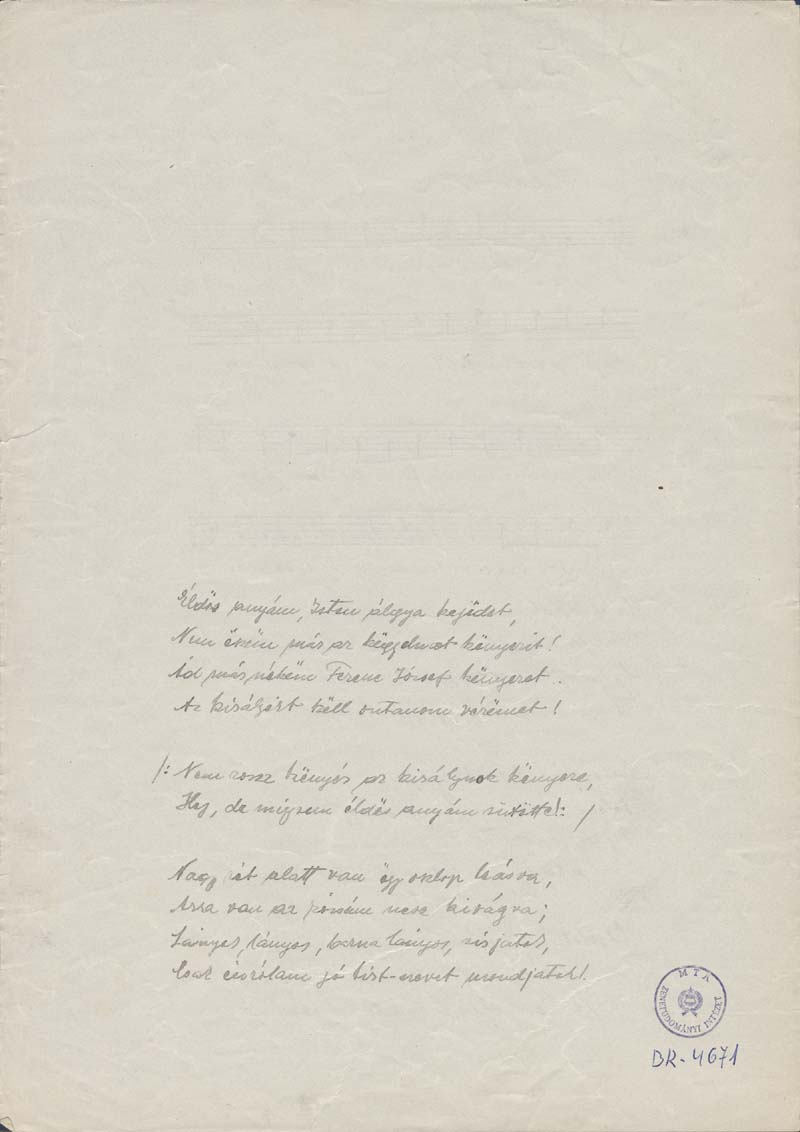 Éldös anyám, Isten álgya kejédet,
Nem ëszëm már az këgyelmet kënyerit!
Ád már nékëm Ferenc József kënyeret.
Az királyért këll ontanom vérëmet!
/: Nem rossz kënyér az királynak kënyere,
Hej, de mégsem éldës anyám sütötte! :/
Nagy rét alatt van ëgy oszlop leásva,
Arra van az rózsám neve kivágva;
Lányok, lányok, barna lányok, sirjatok,
Csak énrólam jó hirt-nevet mondjatok!
MTA
ZENETUDOMÁNYI INTÉZET
BR-4671